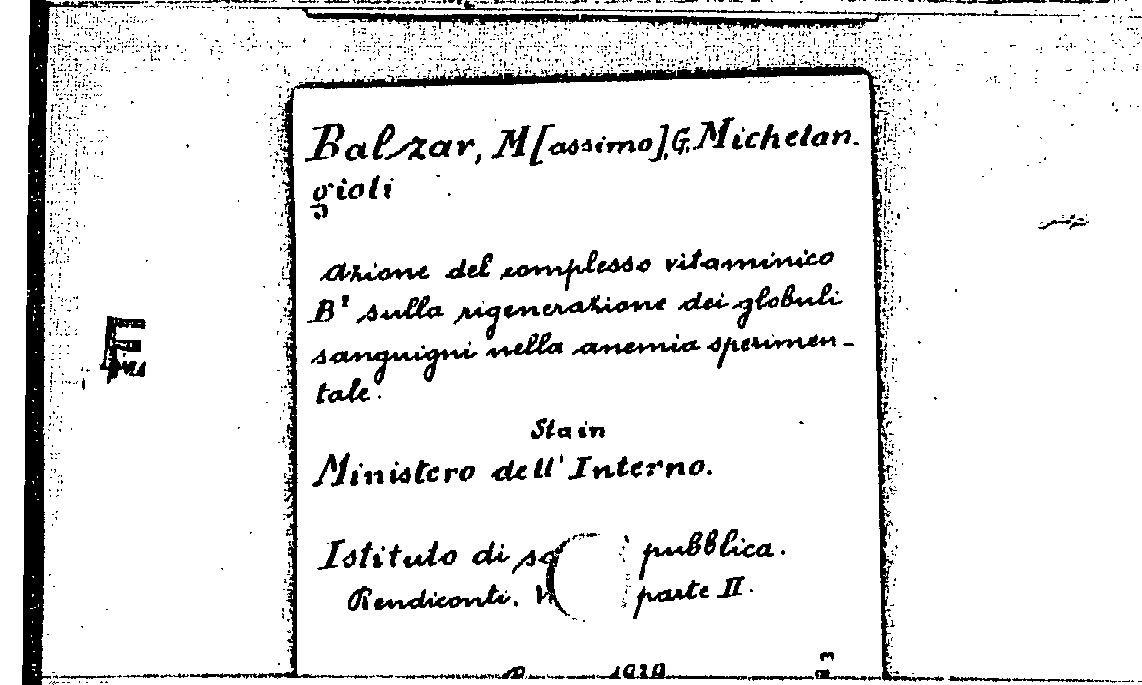 Balzar, M[assimo], G. Michelan.
gioli
Azione del complesso vitaminico
B² sulla rigenerazione dei globuli
sanguigni nella anemia sperimen-
tale.
Stain
Ministero dell' Interno.
Istituto di pubblica.
Rendiconti. parte II.
1939